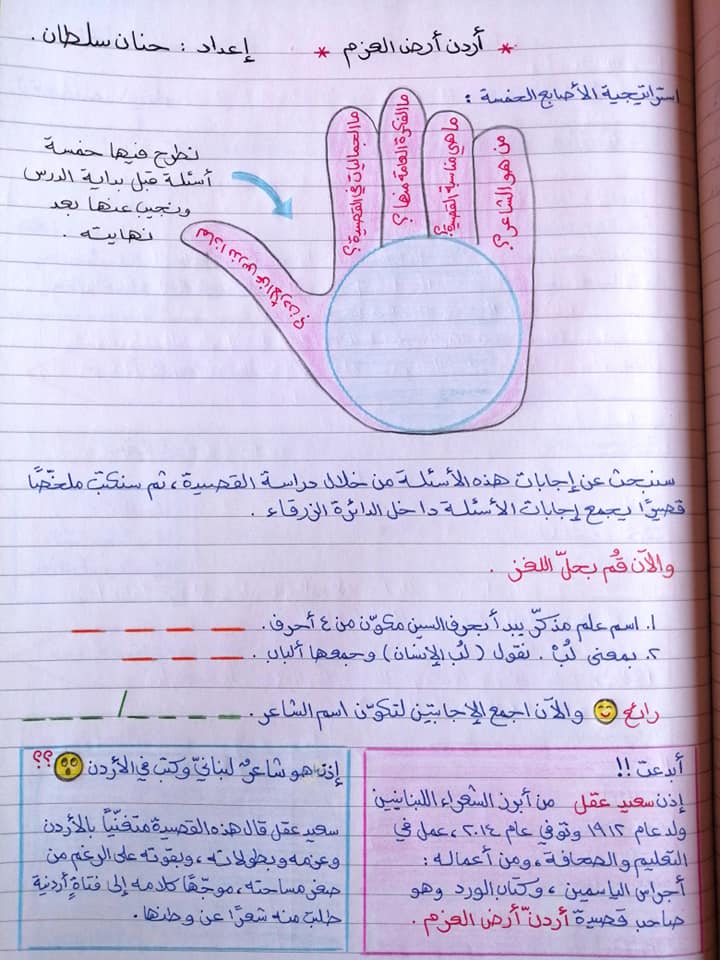 * أردن أرض العزم * إعداد : حنان سلطان .
استراتيجية الأصابع الخمسة :
نطرح فيها خمسة
أسئلة قبل بداية الدرس
ونجيب عنها بعد
نهايته .
من هو الشاعر؟
ما هي مناسبة القصيدة؟
ما الفكرة العامة منها؟
ما الجماليات في القصيدة؟
سنبحث عن إجابات هذه الأسئلة من خلال دراسة القصيدة ، ثم سنكتب ملخّصًا
قصيرًا يجمع إجابات الأسئلة داخل الدائرة الزرقاء .
والآن قُم بحلّ اللغز .
١. اسم علم مذكّر يبدأ بحرف السين مكوّن من ٤ أحرف . _ _ _ _
٢. بمعنى لُبّ . نقول ( لُب الإنسان ) وجمعها ألباب . _ _ _
رائع والآن اجمع الإجابتين لتكوّن اسم الشاعر . _ _ _ _ / _ _ _
أبدعت !!
إذن سعيد عقل من أبرز الشعراء اللبنانيين
ولد عام ١٩١٢ وتوفي عام ٢٠١٤ ، عمل في
التعليم والصحافة ، ومن أعماله :
أجراس الياسمين ، وكتاب الورد وهو
صاحب قصيدة أردنّ أرض العزم .
إذن هو شاعرٌ لبنانيّ وكتب في الأردن ؟؟
سعيد عقل قال هذه القصيدة متغنّياً بالأردن
وعزمه وبطولاته ، وبقوته على الرغم من
صغر مساحته ، موجّهًا كلامه إلى فتاةٍ أردنية
طلبت منه شعرًا عن وطنها .